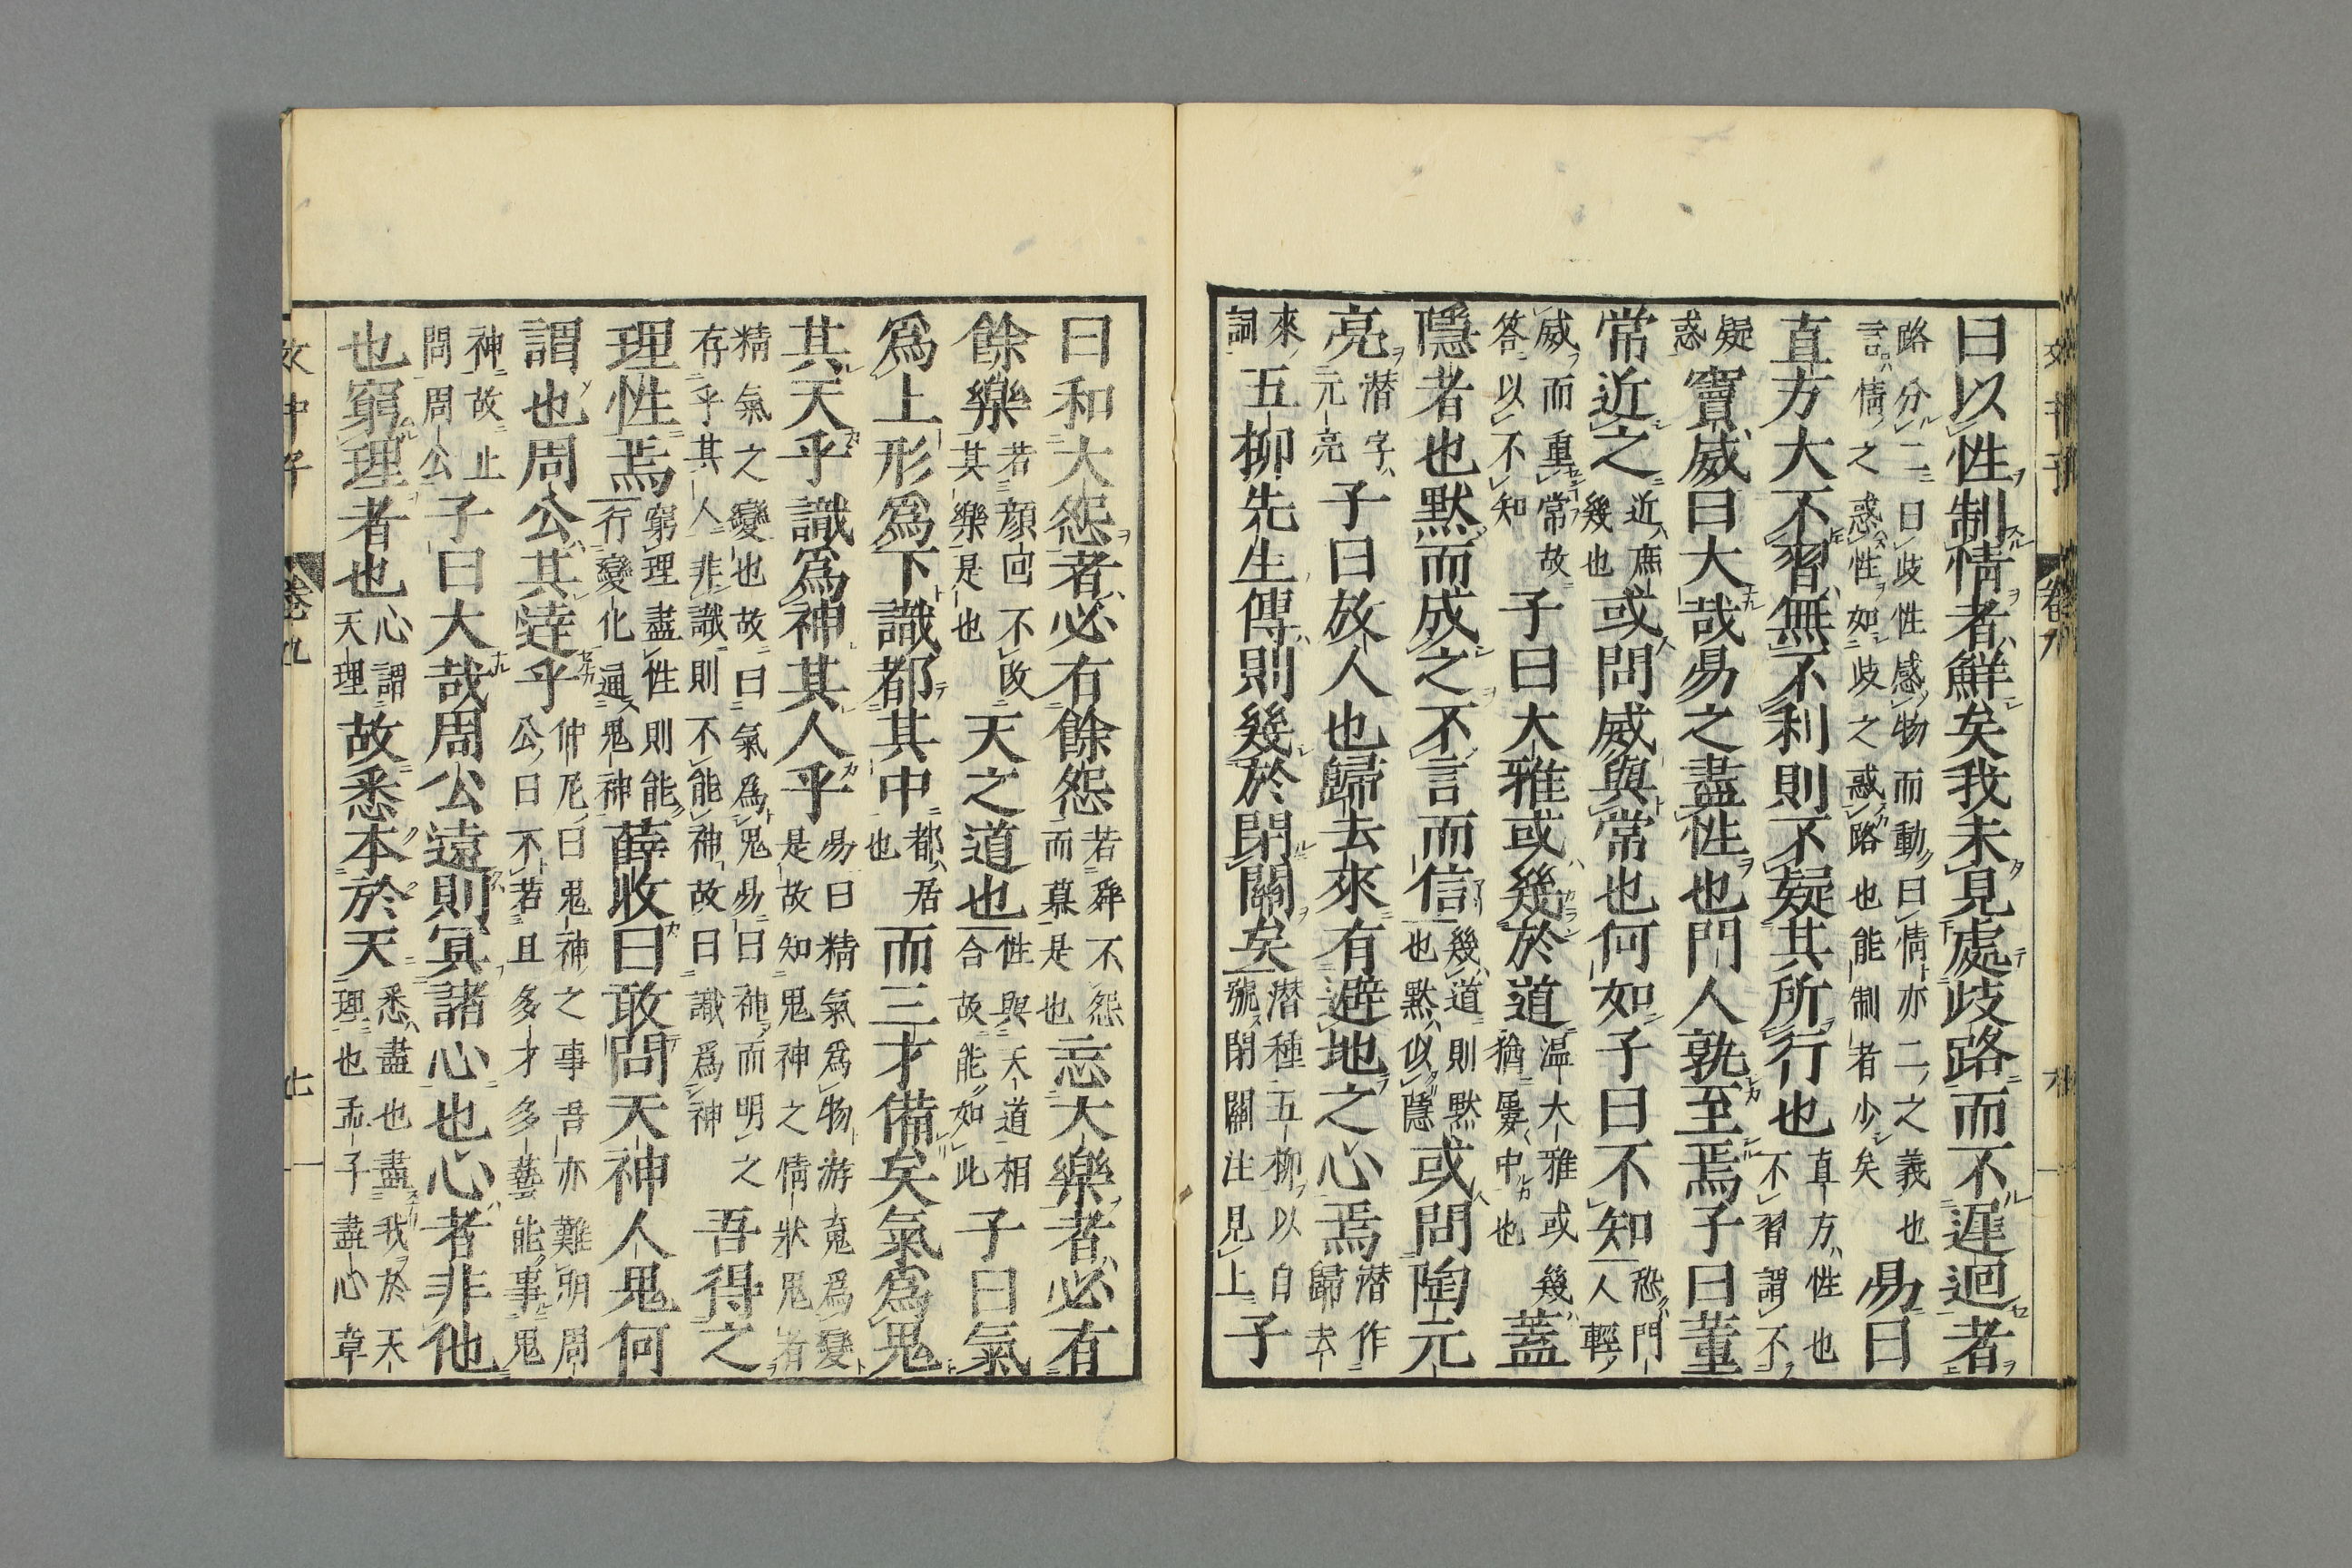 曰以性制情者鮮矣我未見處歧路而不遲迴者
路分二曰歧性感物而動曰情亦二之義也
言情之惑性如歧之惑路也能制者少矣易曰
直方大不習無不利則不疑其所行也直方性也
不習謂不
疑
惑竇威曰大哉易之盡性也門人孰至焉子曰董
常近之近庶
幾也或問威與常也何如子曰不知恐門
人輕
威而重常故
答以不知子曰大雅或幾於道温大雅或幾
猶屢中也蓋
隱者也黙而成之不言而信幾道則黙
也黙似隱或問陶元
亮潜字
元亮子曰故人也歸去來有避地之心焉潜作
歸去
來
詞五柳先生傳則幾於閉關矣潜種五柳以自
號閉關注見上子
曰和大怨者必有餘怨若舜不怨
而慕是也忘大樂者必有
餘樂若顔回不改
其樂是也天之道也性與天道相
合故能如此子曰氣
爲上形爲下識都其中都居
也而三才備矣氣爲鬼
其天乎識爲神其人乎易曰精氣爲物游魂爲變
是故知鬼神之情狀鬼者
精氣之變也故曰氣爲鬼易曰神而明之
存乎其人非識則不能神故曰識爲神吾得之
理性焉窮理盡性則能
行變化通鬼神薛收曰敢問天神人鬼何
謂也周公其達乎仲尼曰鬼神之事吾亦難明周
公曰不若且多才多藝能事鬼
神故止
問周公子曰大哉周公遠則冥諸心也心者非他
也窮理者也心謂
天理故悉本於天悉盡也盡我於天
理也孟子盡心章
文中子 卷九 七